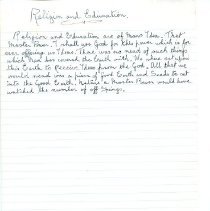 Religion and Education
Religion and Education are of Mans Idea. That
Master Power, I shall use God for this power which is for
ever offering us Ideas. There was no need of such things
which Man has covered the Earth with. We where set upon
this Earth to Receive Ideas from the God. All that we
would need was a piece of Good Earth and Seeds to set
into the Good Earth. Nature's Master Power would have
watched the number of off Springs.